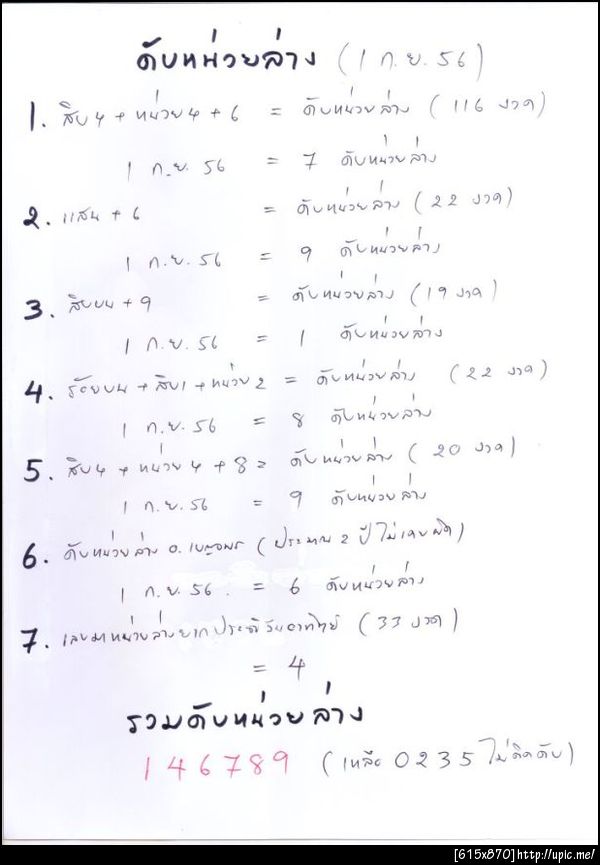 ดับหน่วยล่าง (1 ก.ย. 56)
1. สิบ4 + หน่วย4 + 6 = ดับหน่วยล่าง (116 งวด)
1 ก.ย. 56 = 7 ดับหน่วยล่าง
2. แสน + 6 = ดับหน่วยล่าง (22 งวด)
1 ก.ย. 56 = 9 ดับหน่วยล่าง
3. สิบบน + 9 = ดับหน่วยล่าง (19 งวด)
1 ก.ย. 56 = 1 ดับหน่วยล่าง
4. ร้อยบน + สิบ1 + หน่วย2 = ดับหน่วยล่าง (22 งวด)
1 ก.ย. 56 = 8 ดับหน่วยล่าง
5. สิบ4 + หน่วย4 + 8 = ดับหน่วยล่าง (20 งวด)
1 ก.ย. 56 = 9 ดับหน่วยล่าง
6. ดับหน่วยล่าง อ. (ประมาณ 2 ปี ไม่เคยผิด)
1 ก.ย. 56. = 6 ดับหน่วยล่าง
7. เลขมาหน่วยล่างยากประจำวันอาทิตย์ (33 งวด)
= 4
รวมดับหน่วยล่าง
146789 (เหลือ 0235 ไม่ติดดับ)
[615x870]http://upic.me/